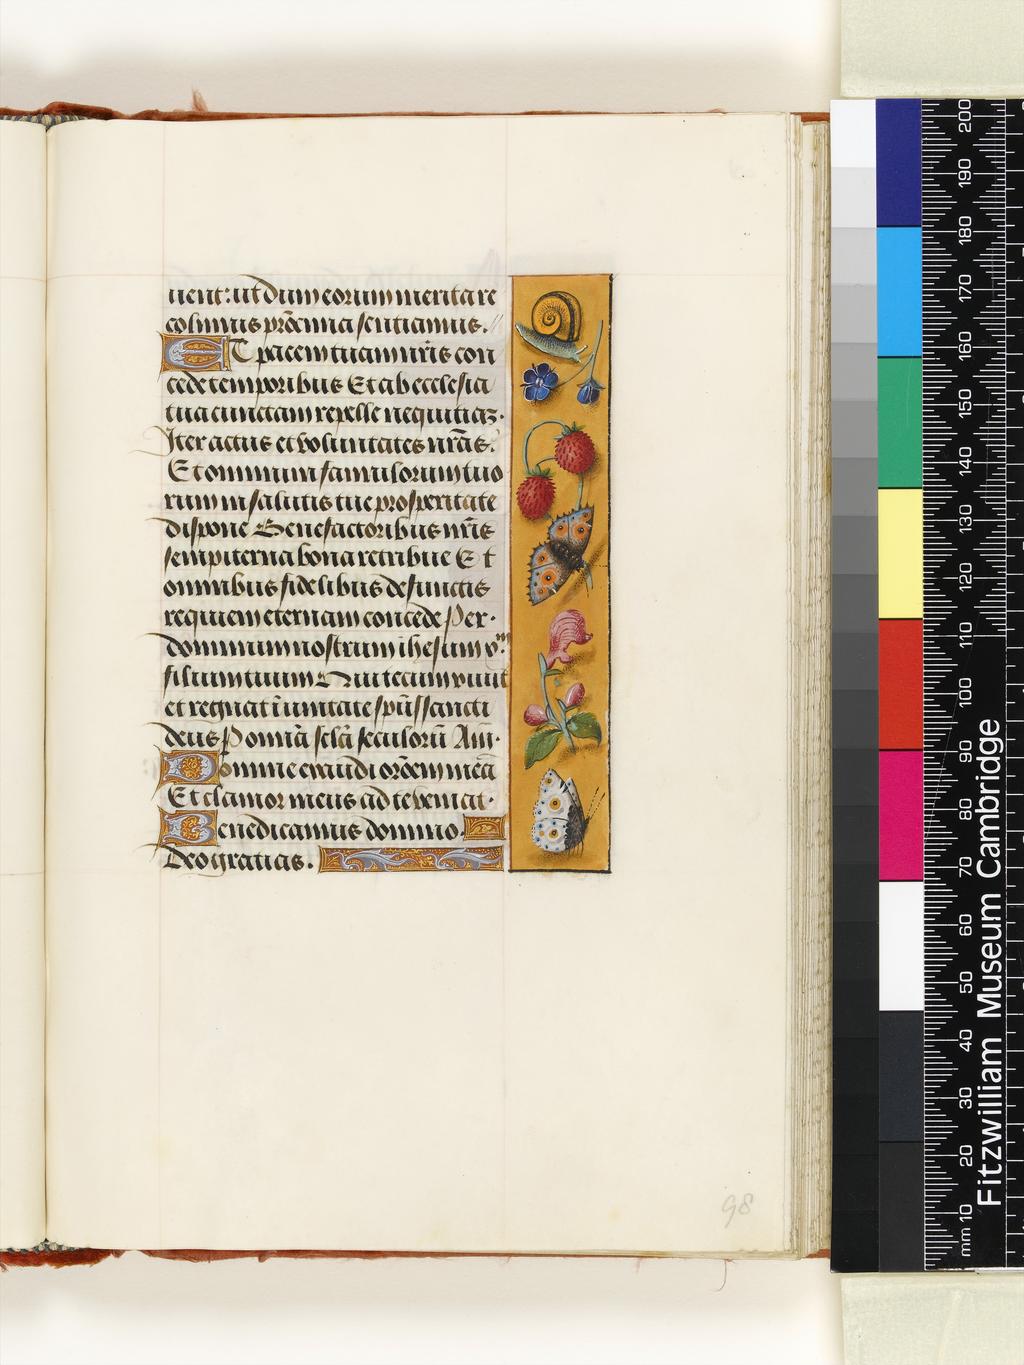 uent: ut dum eorum merita re
colimus prēcima sentiamus.
ET pacem tuam nr̄is con
cede temporibus Et ab ecclesia
tua cunctam repelle nequitiaʒ.
Iter actus et voluntates nr̄as.
Et omnium famulorum tuo
rum in salutis tue prosperitate
dispone Benefactoribus nr̄is
sempiterna bona retribue Et
omnibus fidelibus defunctis
requiem eternam concede Per.
dominum nostrum ihesum xp̄m
filium tuum Qui tecum viuit
et regnat ī unitate sp̄ūs sancti
deus P omnīa sclā seculorū Am.
Domine exaudi orōem meā
Et clamor meus ad te veniat.
Benedicamus domino.
Deo gratias.
98
mm 10 20 30 40 50 60 70 80 90 100 110 120 130 140 150 160 170 180 190 200
Fitzwilliam Museum Cambridge